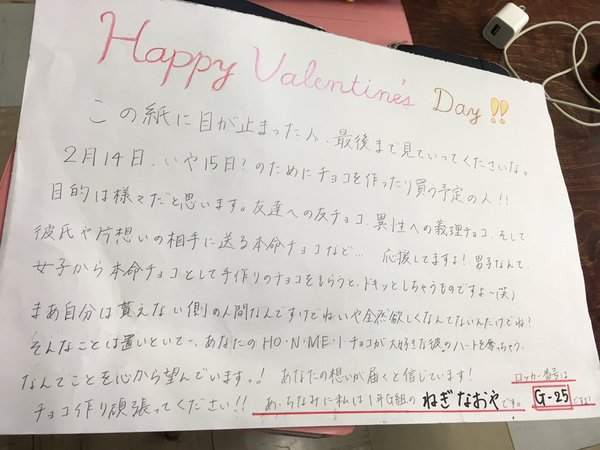 Happy Valentine's Day!!
この紙に目が止まった人、最後まで見ていってくださいな。
2月14日、いや15日?のためにチョコを作ったり買う予定の人!!
目的は様々だと思います。友達への友チョコ、異性への義理チョコ、そして
彼氏や片想いの相手に送る本命チョコなど… 応援してますよ!男子なんて、
女子から本命チョコとして手作りのチョコをもらうと、ドキッとしちゃうものですよ〜(笑)
まあ自分は貰えない側の人間なんですけどねいや全然欲しくなんてないんだけどね!
そんなことは置いといて〜、あなたのHO・N・ME・Iチョコが大好きな彼のハートを奪っちゃう、
なんてことを心から望んでいます。! あなたの想いが届くと信じています!
チョコ作り頑張ってください!! あ、ちなみに私は1年G組のねぎなおやです。
ロッカー番号は
G-25ですよ!